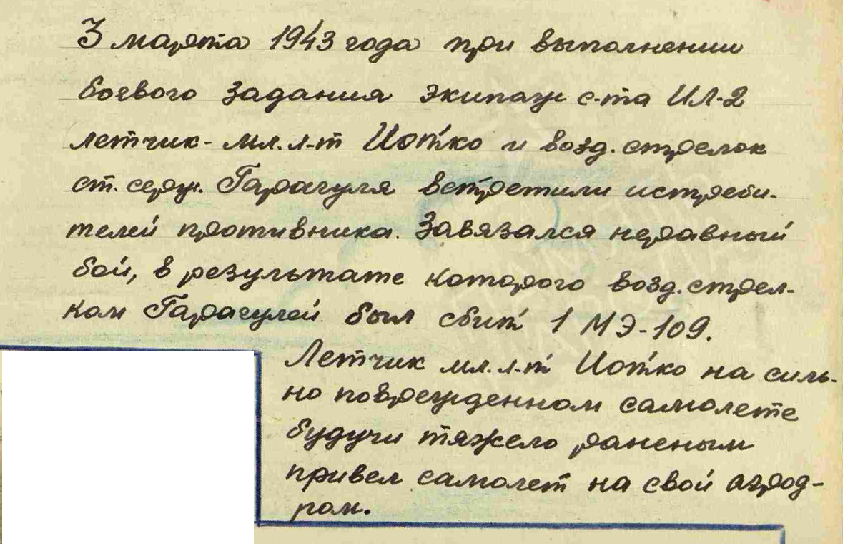 3 марта 1943 года при выполнении
боевого задания экипаж с-та ИЛ-2
летчик- мл. л-т Иотко и возд. стрелок
ст. серж. Гарагуля встретили истреби-
телей противника. Завязался неравный
бой, в результате которого возд. стрел-
ком Гарагулей был сбит 1 МЭ-109.
Летчик мл. л-т Иотко на силь-
но поврежденном самолете
будучи тяжело раненым
привел самолет на свой аэрод-
ром.